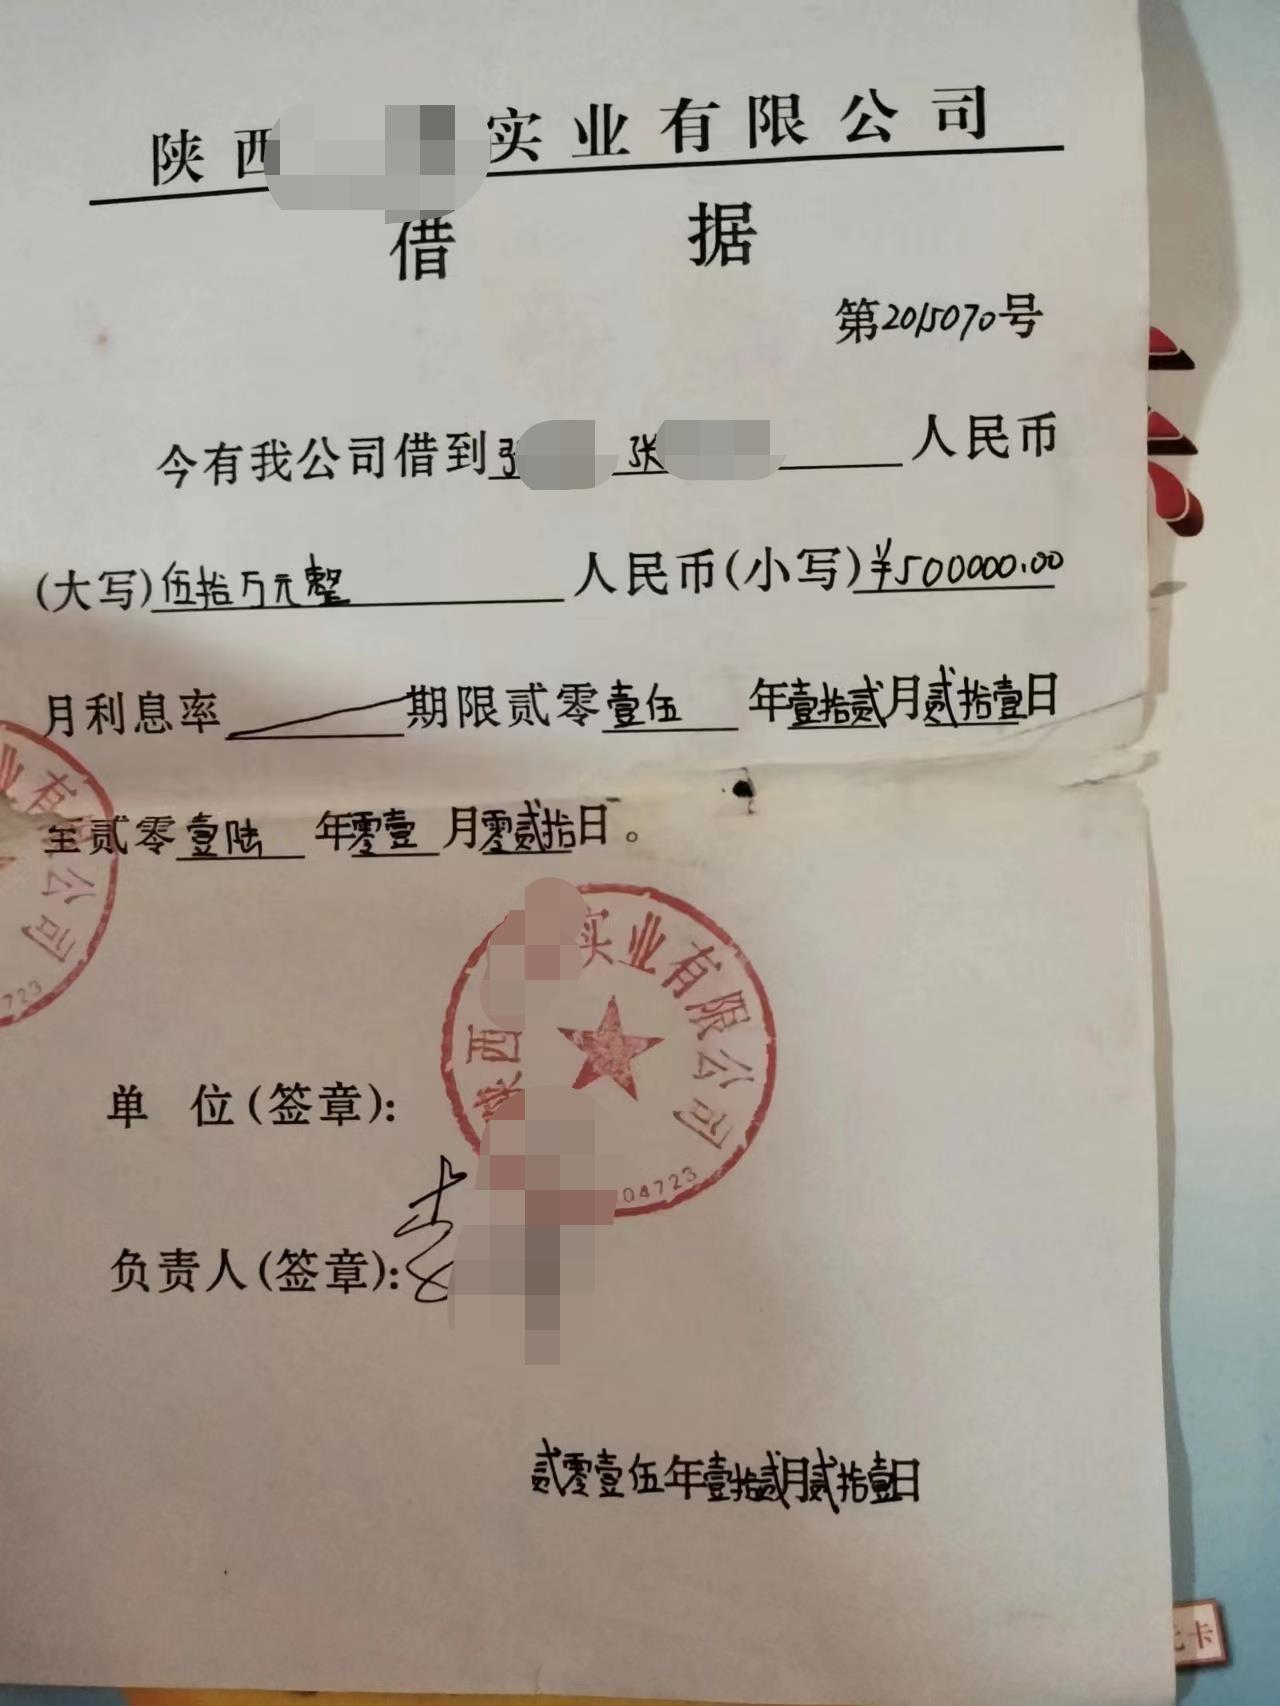 陕西 实业有限公司
借据
第2015070号
今有我公司借到张 张 人民币
(大写)伍拾万元整 人民币(小写)¥500000.00
月利息率 期限贰零壹伍年壹拾贰月贰拾壹日
至贰零壹陆年零壹月零贰拾日。
业有限公司
723
陕西 实业有限公司
04723
单 位(签章):
负责人(签章):
贰零壹伍年壹拾贰月贰拾壹日
卡